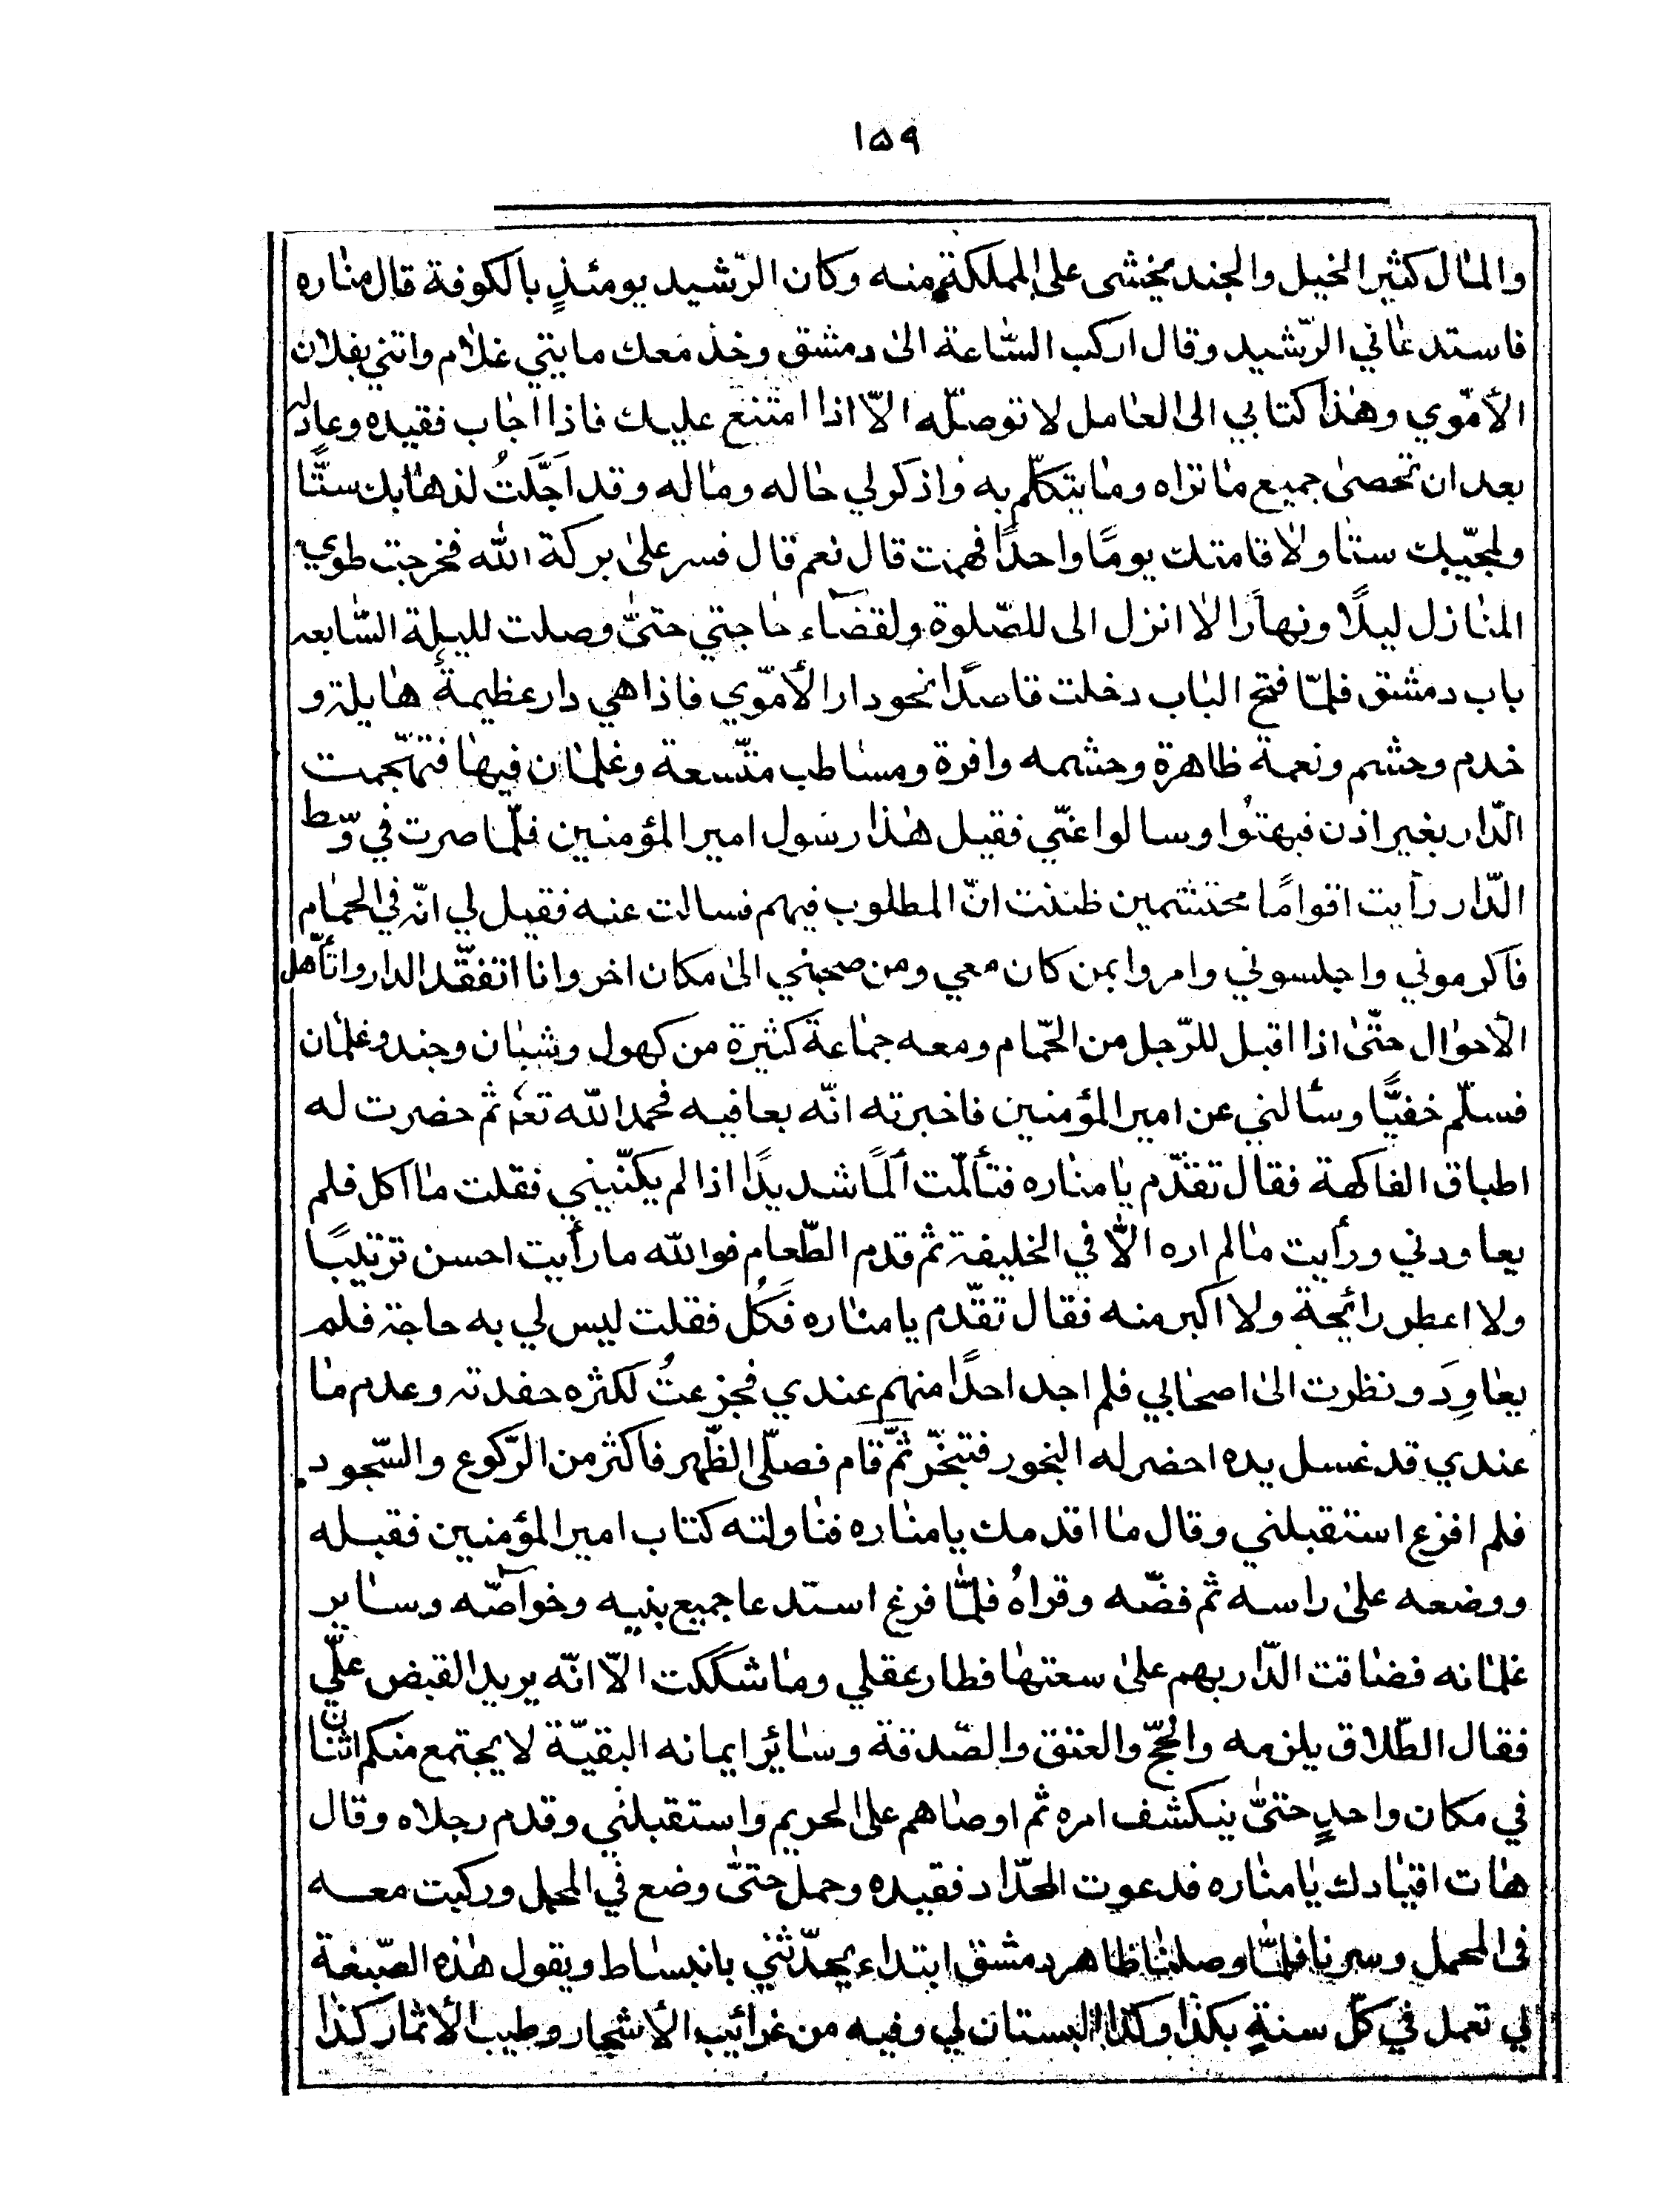 ١٥٩
والمال كثير الخيل والجند يخشى على المملكة منه وكان الرّشيد يومئذٍ بالكوفة قال مناره
فاستدعاني الرّشيد وقال اركب السّاعة الى دمشق وخذ معك مايتي غلام واتني بفلان
الأمّوي وهذا كتابي الى العامل لا توصّله الّا اذا امتنع عليك فاذا اجاب فقيده وعادله
بعد ان تحصى جميع ما تراه وما يتكلّم به واذكر لي حاله وماله وقد اَجَّلَتُ لذهابك ستًّا
ولمجّيبك ستا ولاقامتك يومًا واحدًا فهمت قال نعم قال فسر على بركة الله فخرجت طوي
المنازل ليلًا ونهارًا لا انزل الى للصّلوة ولقضاء حاجتي حتىّ وصلت لليلة السّابعه
باب دمشق فلمّا فتح الباب دخلت قاصدًا نحو دار الأمّوي فاذا هي دار عظيمة هايلة و
خدم وحشم ونعمة ظاهرة وحشمه وافرة ومساطب متّسعة وغلمان فيها فتهجمت
الدّار بغير اذن فبهتوُا وسالوا عنّي فقيل هذا رسول امير المؤمنين فلمّا صرت في وّسط
الدّار رأيت اقوامًا محتشمين ظننت انّ المطلوب فيهم فسالت عنه فقيل لي انّه في الحمام
فاكرموني واجلسوني وامروا بمن كان معي ومن صحبني الى مكان اخر وانا اتفقّد الدار واتأمّل
الأحوال حتّى اذا اقبل للرّجل من الحّمام ومعه جماعة كثيرة من كهول وشبان وجند وغلمان
فسلّم خفيًّا وسألني عن امير المؤمنين فاخبرته انّه بعافيه فحمد الله تعه ثم حضرت له
اطباق الفاكهة فقال تقدّم يا مناره فتألّمت ألمًا شديدًا اذا لم يكنّيني فقلت ما اكل فلم
يعاودني ورأيت ما لم اره الّا في الخليفة ثم قدم الطّعام فوالله ما رأيت احسن ترتيبًا
ولا اعطر رائحة ولا اكبر منه فقال تقّدم يا مناره فَكُل فقلت ليس لي به حاجة فلم
يعاوِدَ ونظرت الى اصحابي فلم اجد احدًا منهم عندي فجزعتُ لكثره حفدته وعدم ما
عندي قد غسل يده احضر له البخور فتبخّر ثمّ قام فصلّى الظّهر فاكثر من الرّكوع والسّجود
فلم افزع استقبلني وقال ما اقدمك يا مناره فناولته كتاب امير المؤمنين فقبله
ووضعه على راسه ثم فضّه وقراهُ فلمّا فرغ استدعا جميع بنيه وخواصّه وساير
غلمانه فضاقت الدّار بهم على سعتها فطار عقلي وما شككت الّا انّه يريد القبض علىّ
فقال الطّلاق يلزمه والحجّ والعتق والصّدقة وسائر ايمانه البقيّة لا يجتمع منكم اثنان
في مكان واحدٍ حتىّ ينكشف امره ثم اوصاهم على الحريم واستقبلني وقدم رجلاه وقال
هات اقيادك يا مناره فدعوت الحدّاد فقيده وحمل حتىّ وضع في المحمل وركبت معه
فى المحمل وسرنا فلمّا وصلنا ظاهر دمشق ابتداء يحدّثني بانبساط ويقول هذه الضّيعة
لي تعمل في كلّ سنةٍ بكذا وكذا البستان لي وفيه من غرائيب الأشجار وطيب الأثمار كذا